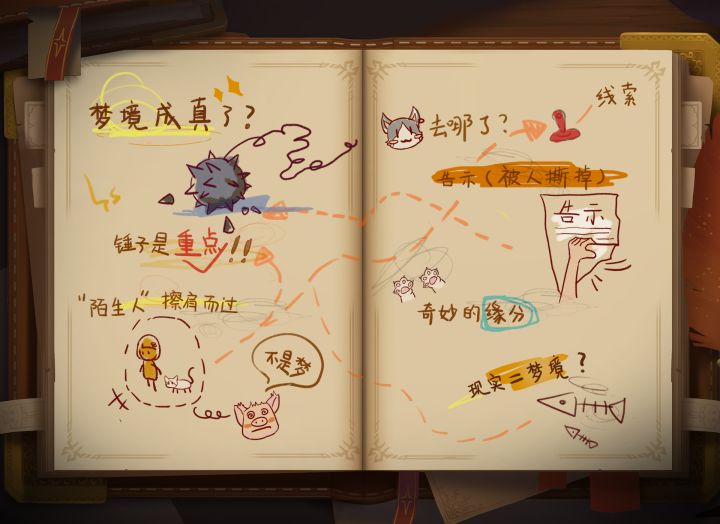 梦境成真了？
锤子是重点!!
"陌生人"擦肩而过
不是梦
线索
去哪了？
告示（被人撕掉）
告示
奇妙的缘分
现实=梦境？